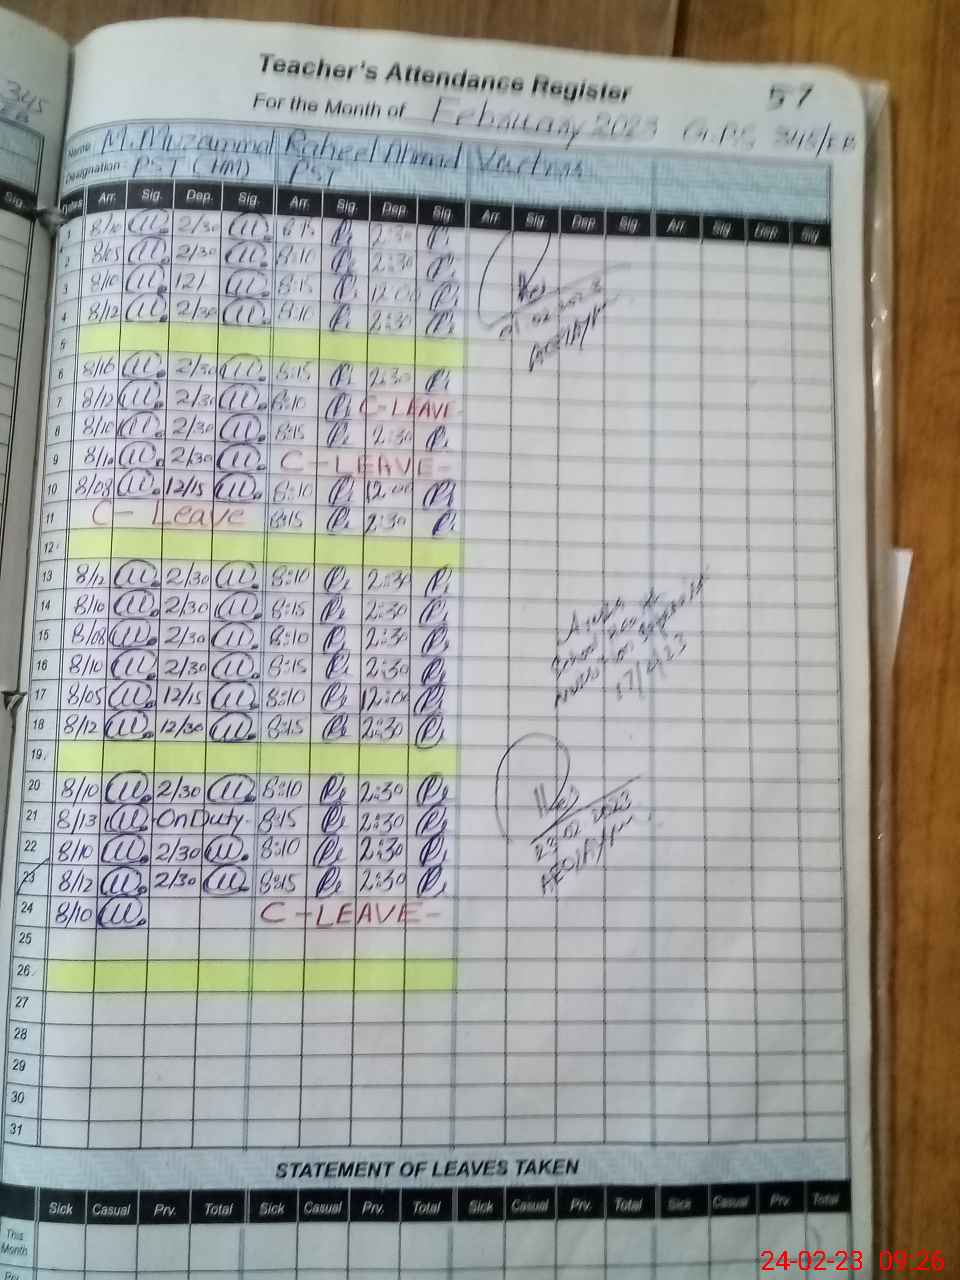 345
EB
Teacher's Attendance Register
57
For the Month of February 2023 G.P.S 345/EB
Name M.Muzammal Raheel Ahmad
Designation PST (HM) PST
Sig. Dates Arr. Sig. Dep. Sig. Arr. Sig. Dep. Sig. Arr. Sig Dep Sig Arr. Sig Dep. Sig
1 8/10 2/30 8:15 2:30
2 8/05 2/30 8:10 2:30
3 8/10 12/ 8:15 12:00
4 8/12 2/30 8:10 2:30
5
6 8/16 2/30 8:15 2:30
7 8/12 2/30 8:10 C-LEAVE-
8 8/10 2/30 8:15 2:30
9 8/10 2/30 C-LEAVE-
10 8/08 12/15 8:10 12:00
11 C- Leave 8:15 2:30
12
13 8/12 2/30 8:10 2:30
14 8/10 2/30 8:15 2:30
15 8/08 2/30 8:10 2:30
16 8/10 2/30 8:15 2:30
17 8/05 12/15 8:10 12:00
17/2/23
18 8/12 12/30 8:15 2:30
19
20 8/10 2/30 8:10 2:30
21 8/13 On Duty- 8:15 2:30
23.02.2023
22 8/10 2/30 8:10 2:30
23 8/12 2/30 8:15 2:30
24 8/10 C-LEAVE-
25
26
27
28
29
30
31
STATEMENT OF LEAVES TAKEN
Sick Casual Prv. Total Sick Casual Prv. Total Sick Casual Prv. Total Sick Casual Prv. Total
This Month
24-02-23 09:26